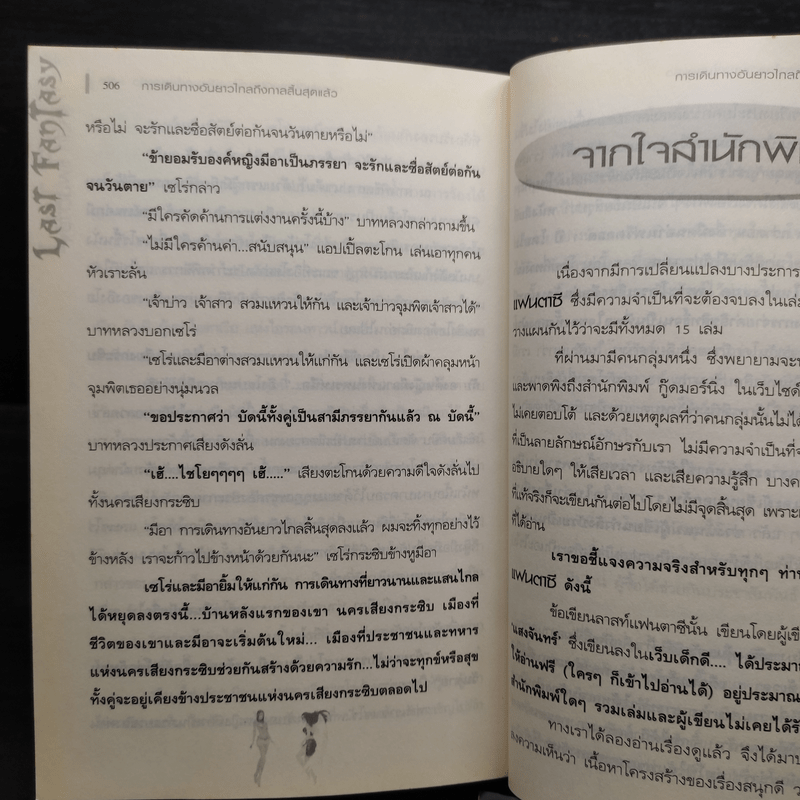 Last Fantasy
506 การเดินทางอันยาวไกลถึงกาลสิ้นสุดแล้ว
หรือไม่ จะรักและซื่อสัตย์ต่อกันจนวันตายหรือไม่"
"ข้ายอมรับองค์หญิงมีอาเป็นภรรยา จะรักและซื่อสัตย์ต่อกัน
จนวันตาย" เซโร่กล่าว
"มีใครคัดค้านการแต่งงานครั้งนี้บ้าง" บาทหลวงกล่าวถามขึ้น
"ไม่มีใครค้านค่า...สนับสนุน" แอปเปิ้ลตะโกน เล่นเอาทุกคน
หัวเราะลั่น
"เจ้าบ่าว เจ้าสาว สวมแหวนให้กัน และเจ้าบ่าวจุมพิตเจ้าสาวได้"
บาทหลวงบอกเซโร่
"เซโร่และมีอาต่างสวมแหวนให้แก่กัน และเซโร่เปิดผ้าคลุมหน้า
จุมพิตเธออย่างนุ่มนวล
"ขอประกาศว่า บัดนี้ทั้งคู่เป็นสามีภรรยากันแล้ว ณ บัดนี้"
บาทหลวงประกาศเสียงดังลั่น
"เฮ้....ไชโยๆๆๆๆ เฮ้....." เสียงตะโกนด้วยความดีใจดังลั่นไป
ทั้งนครเสียงกระซิบ
"มีอา การเดินทางอันยาวไกลสิ้นสุดลงแล้ว ผมจะทิ้งทุกอย่างไว้
ข้างหลัง เราจะก้าวไปข้างหน้าด้วยกันนะ" เซโร่กระซิบข้างหูมีอา
เซโร่และมีอายิ้มให้แก่กัน การเดินทางที่ยาวนานและแสนไกล
ได้หยุดลงตรงนี้...บ้านหลังแรกของเขา นครเสียงกระซิบ เมืองที่
ชีวิตของเขาและมีอาจะเริ่มต้นใหม่... เมืองที่ประชาชนและทหาร
แห่งนครเสียงกระซิบช่วยกันสร้างด้วยความรัก...ไม่ว่าจะทุกข์หรือสุข
ทั้งคู่จะอยู่เคียงข้างประชาชนแห่งนครเสียงกระซิบตลอดไป
การเดินทางอันยาวไกลถึง
จากใจสำนักพิ
เนื่องจากมีการเปลี่ยนแปลงบางประการ
แฟนตาซี ซึ่งมีความจำเป็นที่จะต้องจบลงในเล่ม
วางแผนกันไว้ว่าจะมีทั้งหมด 15 เล่ม
ที่ผ่านมามีคนกลุ่มหนึ่ง ซึ่งพยายามจะ
และพาดพิงถึงสำนักพิมพ์ กู๊ดมอร์นิ่ง ในเว็บไซต์
ไม่เคยตอบโต้ และด้วยเหตุผลที่ว่าคนกลุ่มนั้นไม่ได้
ที่เป็นลายลักษณ์อักษรกับเรา ไม่มีความจำเป็นที่
อธิบายใดๆ ให้เสียเวลา และเสียความรู้สึก บาง
ที่แท้จริงก็จะเขียนกันต่อไปโดยไม่มีจุดสิ้นสุด เพราะ
ที่ได้อ่าน
เราขอชี้แจงความจริงสำหรับทุกๆ ท่าน
แฟนตาซี ดังนี้
ข้อเขียนลาสท์แฟนตาซีนั้น เขียนโดยผู้เขี
'แสงจันทร์' ซึ่งเขียนลงในเว็บเด็กดี.... ได้ประมา
ให้อ่านฟรี (ใครๆ ก็เข้าไปอ่านได้) อยู่ประมาณ
สำนักพิมพ์ใดๆ รวมเล่มและผู้เขียนไม่เคยได้รั
ทางเราได้ลองอ่านเรื่องดูแล้ว จึงได้มา
ลงความเห็นว่า เนื้อหาโครงสร้างของเรื่องสนุกดี